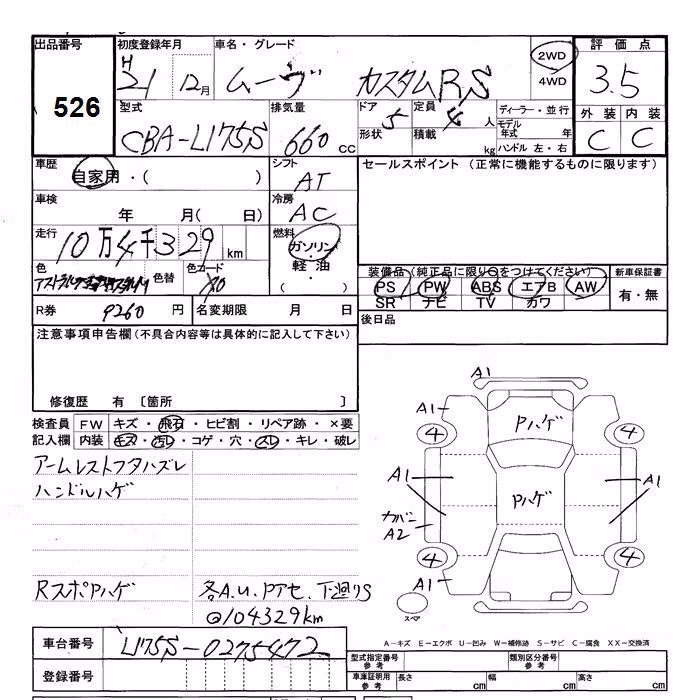 出品番号 初度登録年月 車名・グレード 2WD 評価点
526 H 21 12月 ムーヴ カスタムRS 4WD 3.5
型式 排気量 ドア 5 定員 4 人 ディーラー・並行 外装 内装
CBA-L175S 660 cc 形状 積載 kg モデル年式 年 C C
ハンドル 左・右
車歴 自家用・( ) シフト AT セールスポイント (正常に機能するものに限ります)
車検 年 月( 日) 冷房 AC
走行 10万4千329 km 燃料 ガソリン・軽油・( )
色 色替 色コード
装備品(純正品に限り○をつけてください) 新車保証書
PS PW ABS エアB AW 有・無
SR ナビ TV カワ
R券 9260 円 名変期限 月 日 後日品
注意事項申告欄(不具合内容等は具体的に記入して下さい)
修復歴 有 〔箇所 〕
検査員 FW キズ・飛石・ヒビ割・リペア跡・×要
記入欄 内装 キズ・汚レ・コゲ・穴・スレ・キレ・破レ
アームレストフタハズレ
ハンドルハゲ
Rスポアハゲ 各A.U.Pアセ.下廻りS
@104329km
A1
A1 Pハゲ
4 4
A1 Pハゲ A1
カバー A2
4 4
A1
スペア
A-キズ E-エクボ U-凹み W-補修跡 S-サビ C-腐食 XX-交換済
車台番号 L175S-0275472
登録番号
型式指定番号 参考 類別区分番号 参考
車庫証明用 参考 長さ cm 幅 cm 高さ cm